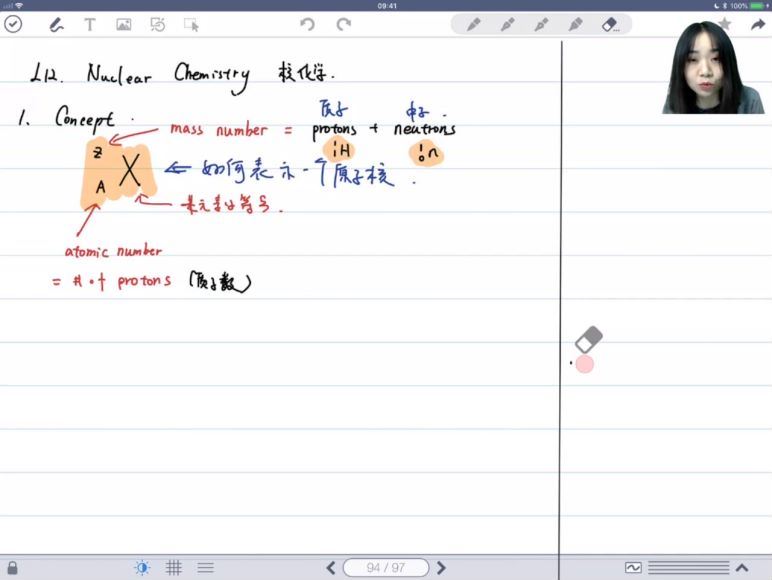 09:41
100%
L12. Nuclear Chemistry 核化学.
1. Concept.
质子 中子.
mass number = protons + neutrons
¹₁H ¹₀n
Z
A X ← 如何表示一个原子核.
某元素的符号.
atomic number
= # of protons (质子数)
94 / 97